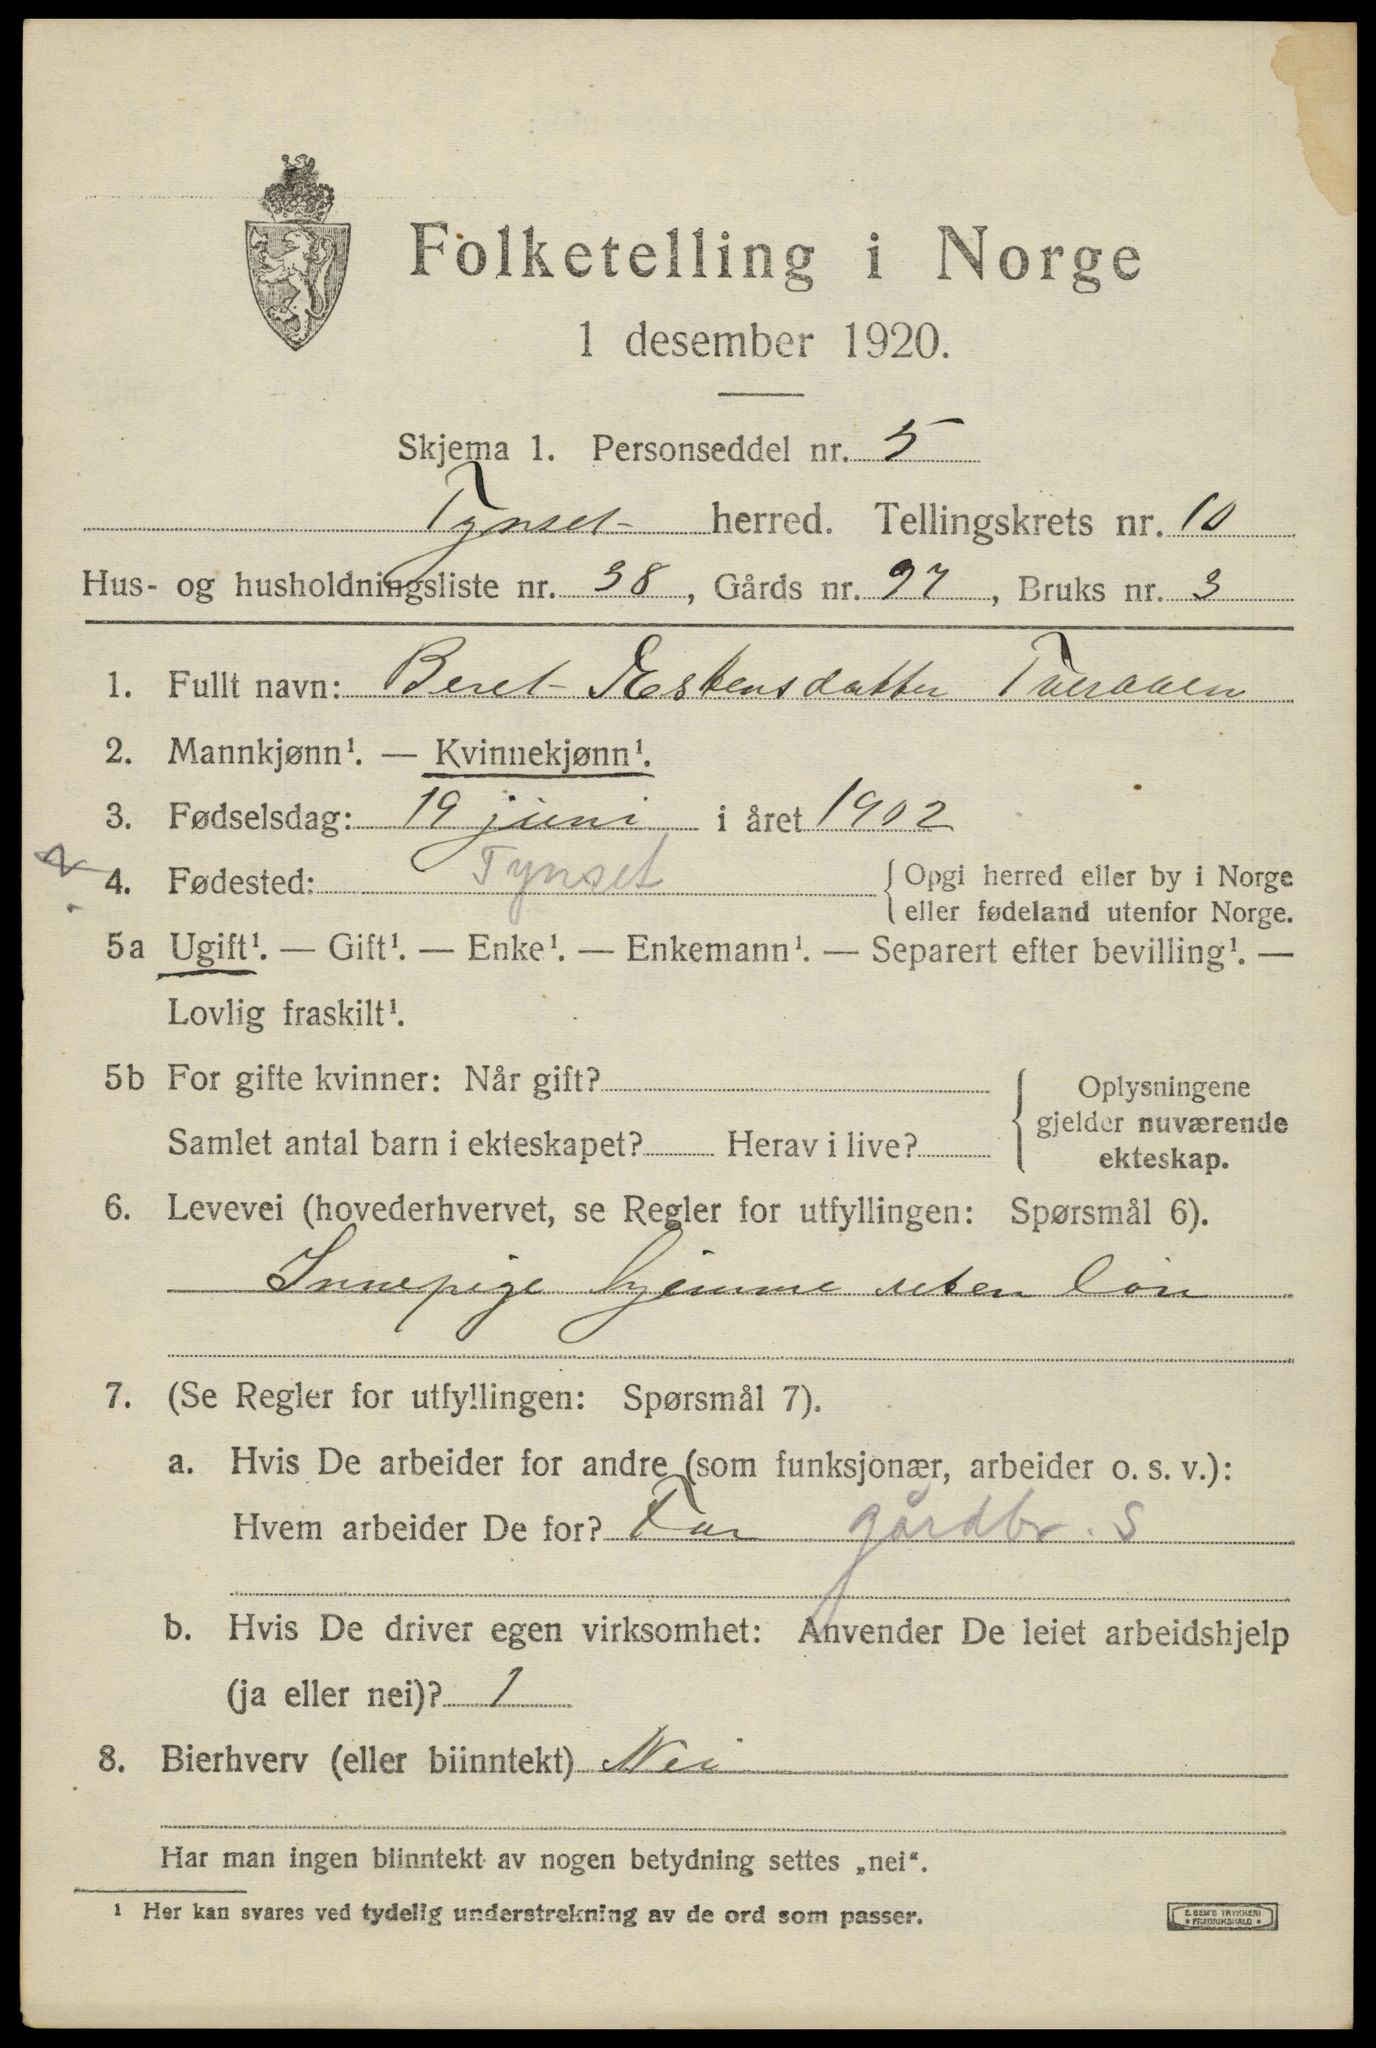 Folketelling i Norge
1 desember 1920.
Skjema 1. Personseddel nr. 5
Tynset herred. Tellingskrets nr. 10
Hus- og husholdningsliste nr. 38, Gårds nr. 97, Bruks nr. 3
1. Fullt navn: Beret Estensdatter Tveraaen
2. Mannkjønn¹. — Kvinnekjønn¹.
3. Fødselsdag: 19 juni i året 1902
4. Fødested: Tynset { Opgi herred eller by i Norge
eller fødeland utenfor Norge.
5a Ugift¹. — Gift¹. — Enke¹. — Enkemann¹. — Separert efter bevilling¹. —
Lovlig fraskilt¹.
5b For gifte kvinner: Når gift?
Samlet antal barn i ekteskapet? Herav i live?
{ Oplysningene
gjelder nuværende
ekteskap.
6. Levevei (hovederhvervet, se Regler for utfyllingen: Spørsmål 6).
Innepige hjemme uten løn
7. (Se Regler for utfyllingen: Spørsmål 7).
a. Hvis De arbeider for andre (som funksjonær, arbeider o. s. v.):
Hvem arbeider De for? Far gårdbr. S
b. Hvis De driver egen virksomhet: Anvender De leiet arbeidshjelp
(ja eller nei)? 1
8. Bierhverv (eller biinntekt) Nei
Har man ingen biinntekt av nogen betydning settes „nei“.
¹ Her kan svares ved tydelig understrekning av de ord som passer.
E. SEM'S TRYKKERI
• FREDRIKSHALD •